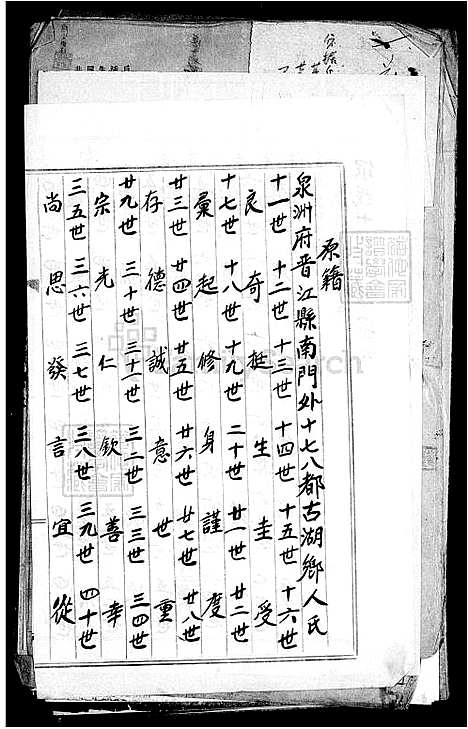 原籍
泉州府晋江縣南門外十七八都古湖鄉人氏
十一世 十二世 十三世 十四世 十五世 十六世
良 奇 挺 生 圭 受
十七世 十八世 十九世 二十世 廿一世 廿二世
彙 起 修 身 謹 度
廿三世 廿四世 廿五世 廿六世 廿七世 廿八世
存 德 誠 意 世 重
廿九世 三十世 三十一世 三二世 三三世 三四世
宗 光 仁 欽 善 幸
三五世 三六世 三七世 三八世 三九世 四十世
尚 思 發 言 宜 從